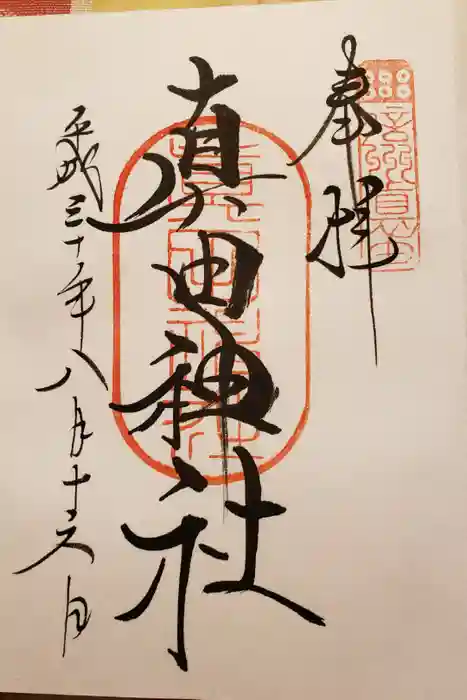 奉拝
真田神社
平成三十年八月十六日